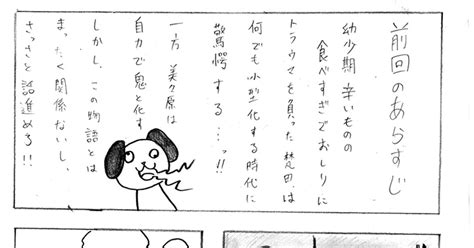 前回のあらすじ
幼少期辛いものの
食べすぎでおしりに
トラウマを負った梵田は
何でも小型化する時代に
驚愕する…っ!!
一方 美々原は
自力で鬼と化す
しかし、この物語とは
まったく関係ないし、
さっさと話進めろ!!